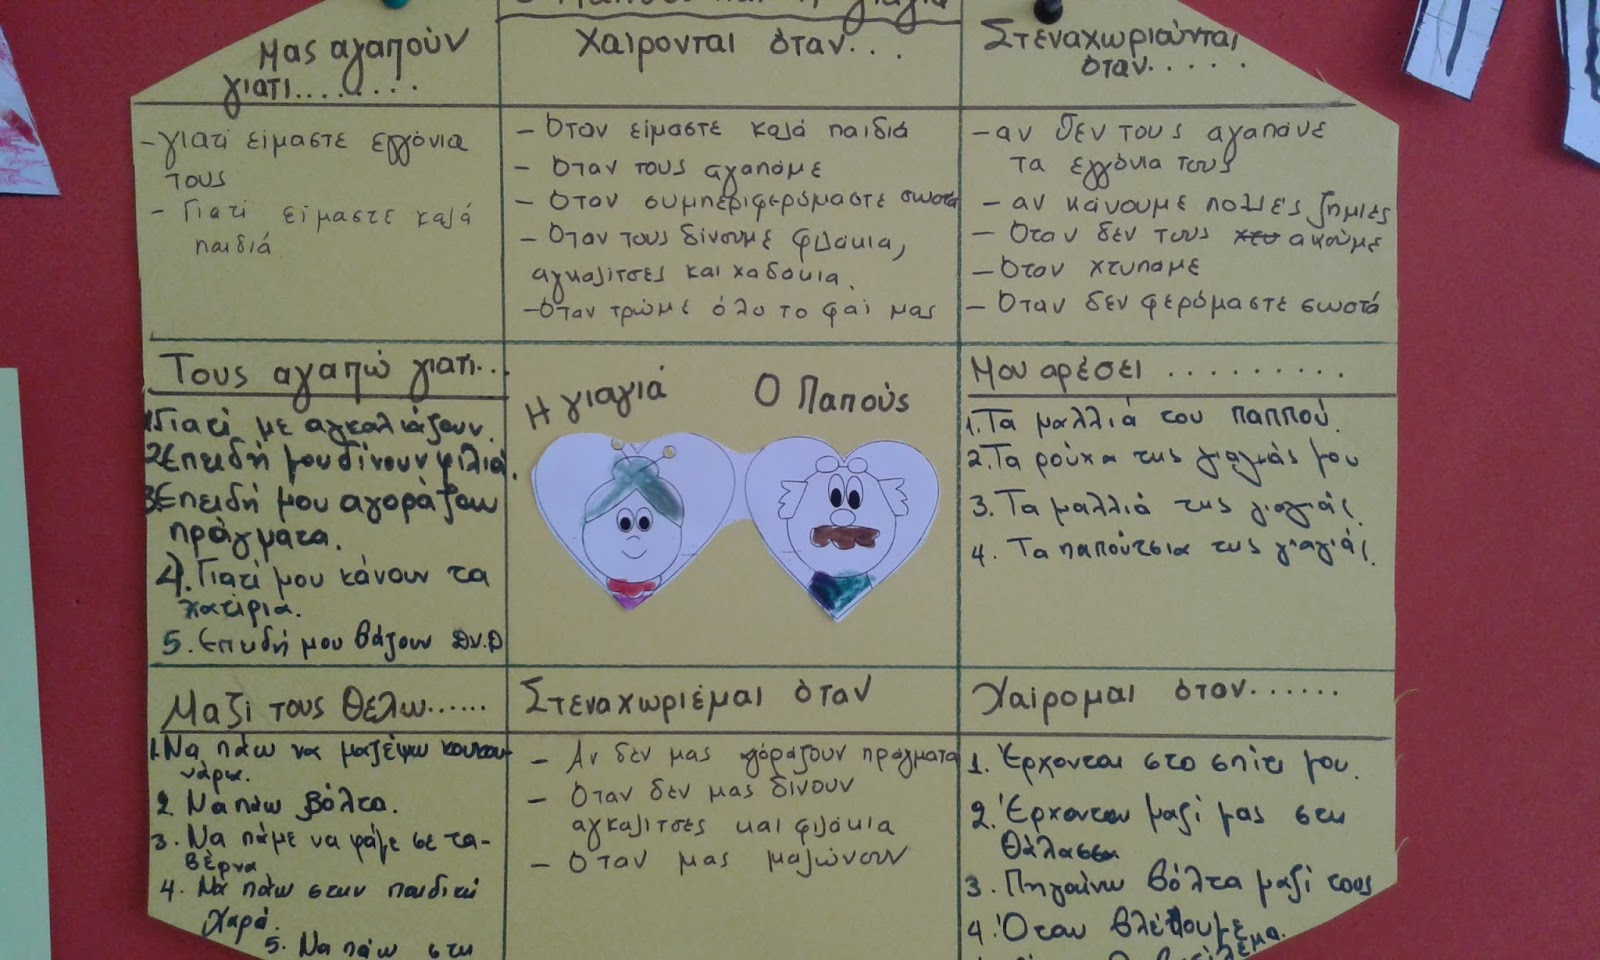 Ο Παππούς και η γιαγιά
Μας αγαπούν
γιατι........
-Γιατί είμαστε εγγόνια
τους
- Γιατί είμαστε καλά
παιδιά
Χαίρονται όταν...
- Όταν είμαστε καλά παιδιά
- Όταν τους αγαπάμε
- Όταν συμπεριφερόμαστε σωστά
- Όταν τους δίνουμε φιλάκια,
αγκαλίτσες και χαδάκια.
-Όταν τρώμε όλο το φαΐ μας
Στεναχωριούνται
όταν.....
-αν δεν τους αγαπάνε
τα εγγόνια τους
- αν κάνουμε πολλές ζημιές
- Όταν δεν τους ακούμε
- Όταν χτυπάμε
- Όταν δεν φερόμαστε σωστά
Τους αγαπώ γιατι...
1.Γιατί με αγκαλιάζουν.
2.Επειδή μου δίνουν φιλιά.
3.Επειδή μου αγοράζουν
πράγματα.
4.Γιατί μου κάνουν τα
χατίρια.
5.Επειδή μου βάζουν D.V.D
Η γιαγιά
Ο Παπούς
Μου αρέσει .........
1.Τα μαλλιά του παππού.
2.Τα ρούχα της γιαγιάς μου
3. Τα μαλλιά της γιαγιάς.
4. Τα παπούτσια της γιαγιάς.
Μαζί τους θέλω......
1.Να πάω να μαζέψω κουκου-
νάρια.
2. Να πάω βόλτα.
3. Να πάμε να φάμε σε τα-
βέρνα
4. Να πάω στην παιδική
χαρά.
5. Να πάω στη
Στεναχωριέμαι όταν
- Αν δεν μας αγοράζουν πράγματα
- Όταν δεν μας δίνουν
αγκαλίτσες και φιλάκια
- Όταν μας μαλώνουν
Χαίρομαι όταν......
1. Έρχονται στο σπίτι μου.
2. Έρχονται μαζί μας στη
θάλασσα
3. Πηγαίνω βόλτα μαζί τους
4. Όταν βλέπουμε